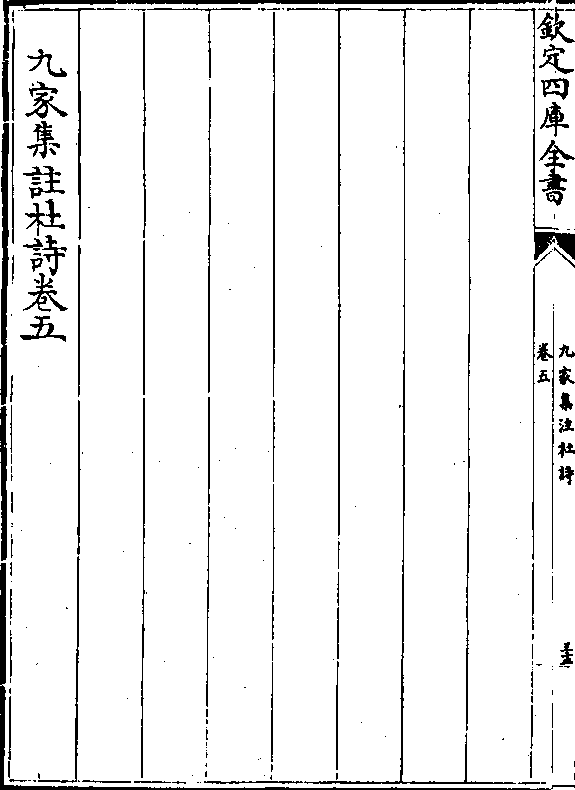 欽定四庫全書
九家集注杜詩
卷五
九家集註杜詩卷五